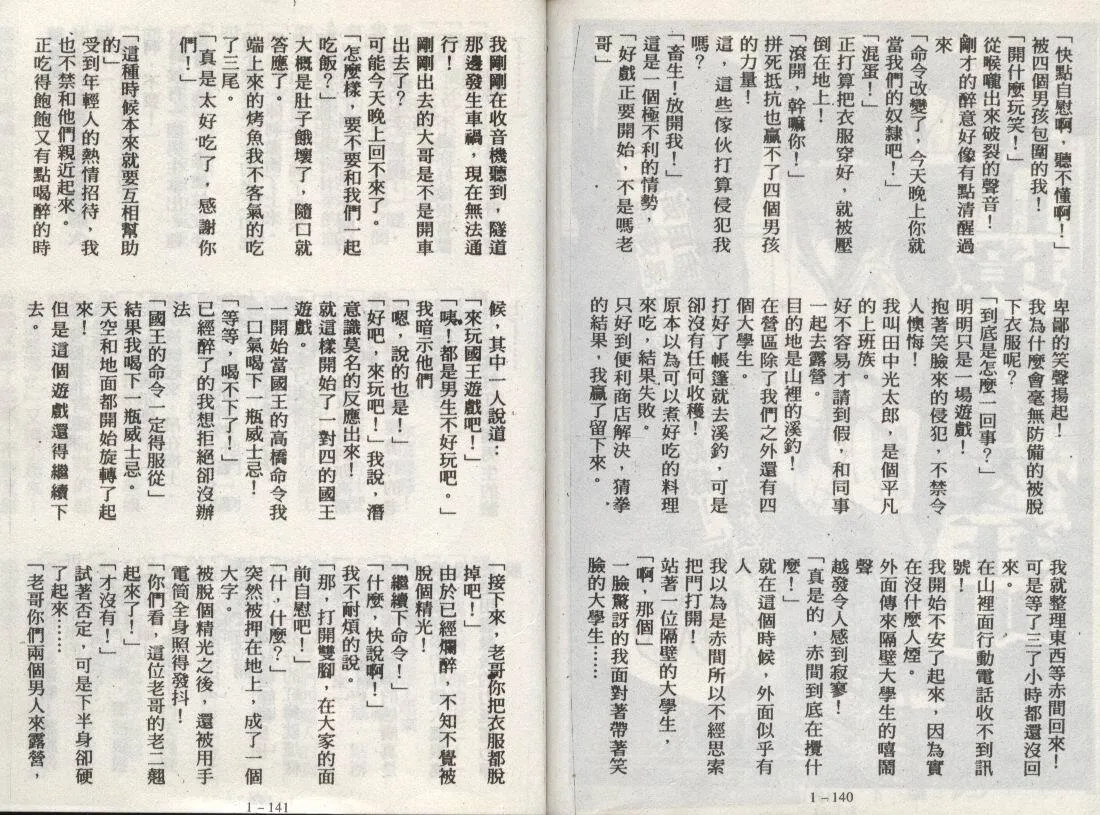 「快點自慰啊，聽不懂啊！」
被四個男孩包圍的我！
「開什麼玩笑！」
從喉嚨出來破裂的聲音！
剛才的醉意好像有點清醒過
來
「命令改變了，今天晚上你就
當我們的奴隸吧！」
「混蛋！」
正打算把衣服穿好，就被壓
倒在地上！
「滾開，幹嘛你！」
拼死抵抗也贏不了四個男孩
的力量！
這，這些傢伙打算侵犯我
嗎？
「畜生！放開我！」
這是一個極不利的情勢，
「好戲正要開始，不是嗎老
哥」
卑鄙的笑聲揚起！
我為什麼會毫無防備的被脫
下衣服呢？
「到底是怎麼一回事？」
明明只是一場遊戲！
抱著笑臉來的侵犯，不禁令
人懊悔！
我叫田中光太郎，是個平凡
的上班族。
好不容易才請到假，和同事
一起去露營。
目的地是山裡的溪釣！
在營區除了我們之外還有四
個大學生。
打好了帳篷就去溪釣，可是
卻沒有任何收穫！
原本以為可以煮好吃的料理
來吃，結果失敗。
只好到便利商店解決，猜拳
的結果，我贏了留下來。
我就整理東西等赤間回來！
可是等了三了小時都還沒回
來。
在山裡面行動電話收不到訊
號！
我開始不安了起來，因為實
在沒什麼人煙。
外面傳來隔壁大學生的嘻鬧
聲
越發令人感到寂寥！
「真是的，赤間到底在攪什
麼！」
就在這個時候，外面似乎有
人
我以為是赤間所以不經思索
把門打開！
站著一位隔壁的大學生，
「啊，那個」
一臉驚訝的我面對著帶著笑
臉的大學生……
1－140
我剛剛在收音機聽到，隧道
那邊發生車禍，現在無法通
行！
剛剛出去的大哥是不是開車
出去了？
可能今天晚上回不來了。
「怎麼樣，要不要和我們一起
吃飯？」
大概是肚子餓壞了，隨口就
答應了。
端上來的烤魚我不客氣的吃
了三尾。
「真是太好吃了，感謝你
們！」
「這種時候本來就要互相幫助
的」
受到年輕人的熱情招待，我
也不禁和他們親近起來。
正吃得飽飽又有點喝醉的時
候，其中一人說道：
「來玩國王遊戲吧！」
「咦！都是男生不好玩吧。」
我暗示他們
「嗯，說的也是！」
「好吧，來玩吧！」我說，潛
意識莫名的反應出來！
就這樣開始了一對四的國王
遊戲。
一開始當國王的高橋命令我
一口氣喝下一瓶威士忌！
「等等，喝不下了！」
已經醉了的我想拒絕卻沒辦
法
「國王的命令一定得服從」
結果我喝下一瓶威士忌。
天空和地面都開始旋轉了起
來！
但是這個遊戲還得繼續下
去。
「接下來，老哥你把衣服都脫
掉吧！」
由於已經爛醉，不知不覺被
脫個精光！
「繼續下命令！」
「什麼，快說啊！」
我不耐煩的說。
「那，打開雙腳，在大家的面
前自慰吧！」
「什，什麼？」
突然被押在地上，成了一個
大字。
被脫個精光之後，還被用手
電筒全身照得發抖！
「你們看，這位老哥的老二翹
起來了！」
「才沒有！」
試著否定，可是下半身卻硬
了起來……
「老哥你們兩個男人來露營，
1－141